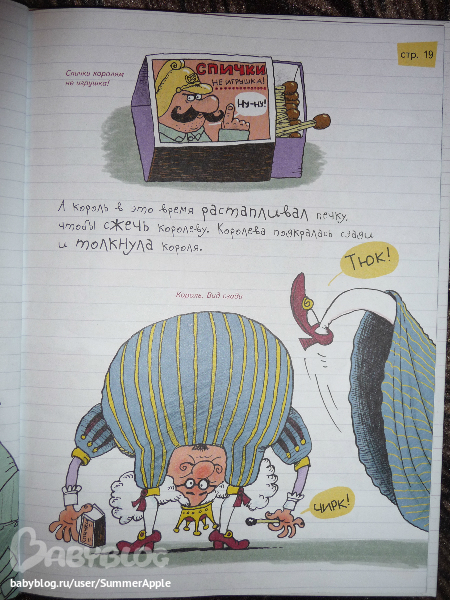 стр. 19
Спички королям
не игрушка!
СПИЧКИ
НЕ ИГРУШКА!
НУ-НУ!
А король в это время растапливал печку,
чтобы сжечь королеву. Королева подкралась сзади
и толкнула короля.
ТЮК!
Король. Вид сзади
ЧИРК!
BABYBLOG
babyblog.ru/user/SummerApple